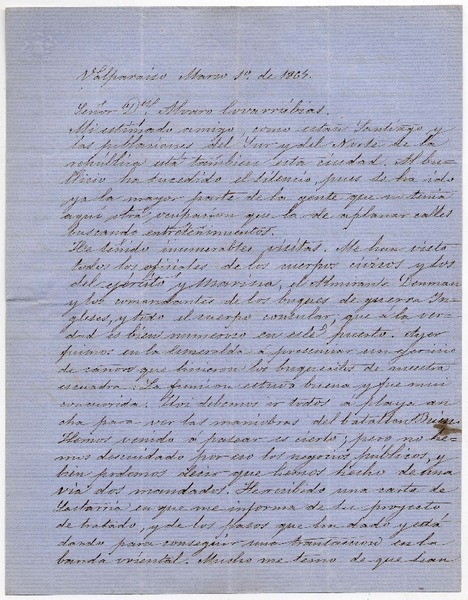 Valparaiso Marzo 1º de 1865.
Señor Dn. Alvaro Covarrúbias.
Mi estimado amigo, como están Santiago y
las poblaciones del Sur y del Norte de la
república está tambien esta ciudad. Al bu-
llicio ha sucedido el silencio, pues se ha ido
ya la mayor parte de la gente que no tenia
aqui otra ocupacion que la de aplanar calles
buscando entretenimientos.
He tenido inumerables visitas. Me han visto
todos los oficiales de los cuerpos civicos y los
del ejército y Marina, el Almirante Denman
y los comandantes de los buques de guerra In-
gleses, y todo el cuerpo consular, que a la ver-
dad es bien numeroso en este puerto. Ayer
fuimos en la Esmeralda a presenciar un ejercicio
de cañon que hicieron los buquecitos de nuestra
escuadra. La funcion estuvo buena y fue mui
concurrida. Hoi debemos ir todos a playa an-
cha para ver las maniobras del batallon Buin.
Hemos venido a pasear es cierto; pero no he-
mos descuidado por eso los negocios públicos, y
bien podemos decir que hemos hecho de una
via dos mandados. He recibido una carta de
Lastarria en que me informa de su proyecto
de tratado, y de los pasos que ha dado y está
dando para conseguir una transaccion en la
banda oriental. Mucho me temo de que sean